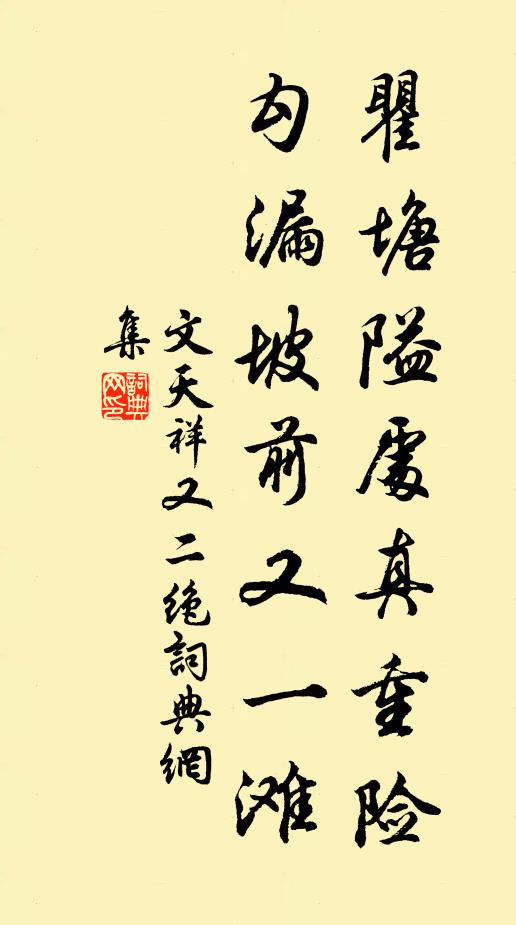 瞿塘隘處真重险
勾漏坡前又一滩
文天祥又二绝詞典網
集
詞典网印